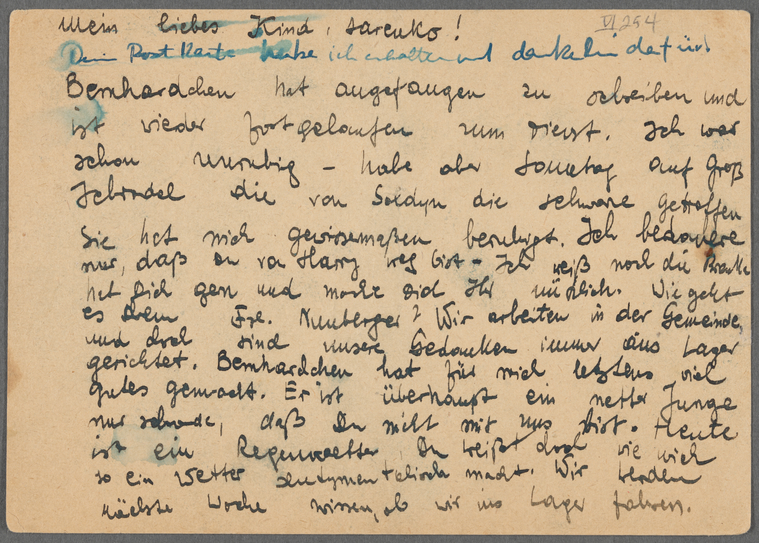 Mein liebes Kind, Sarenko!
VI 254
Dein Post Karte habe ich erhalten und danke dafür!
Bernhardchen hat angefangen zu schreiben und
ist wieder fortgelaufen zum Dienst. Ich war
schon unruhig – habe aber Sonntag auf Groß
die von Soldyn die schwarze getroffen
Sie hat mich gewissermaßen beruhigt. Ich bedauere
nur, daß Du von Harry weg bist – Ich weiß noch die
hat Dich gern und mache Dich Ihr nützlich. Wie geht
es Frl. Nunberger? Wir arbeiten in der Gemeinde,
und doch sind unsere Gedanken immer aus Lager
gerichtet. Bernhardchen hat für mich letztens viel
gutes gemacht. Er ist überhaupt ein netter Junge
nur schade, daß Du nicht mit uns bist. Heute
ist ein Regenwetter, Du weißt doch wie mich
so ein Wetter sentymentalisch macht. Wir werden
nächste Woche wissen, ob wir ins Lager fahren.